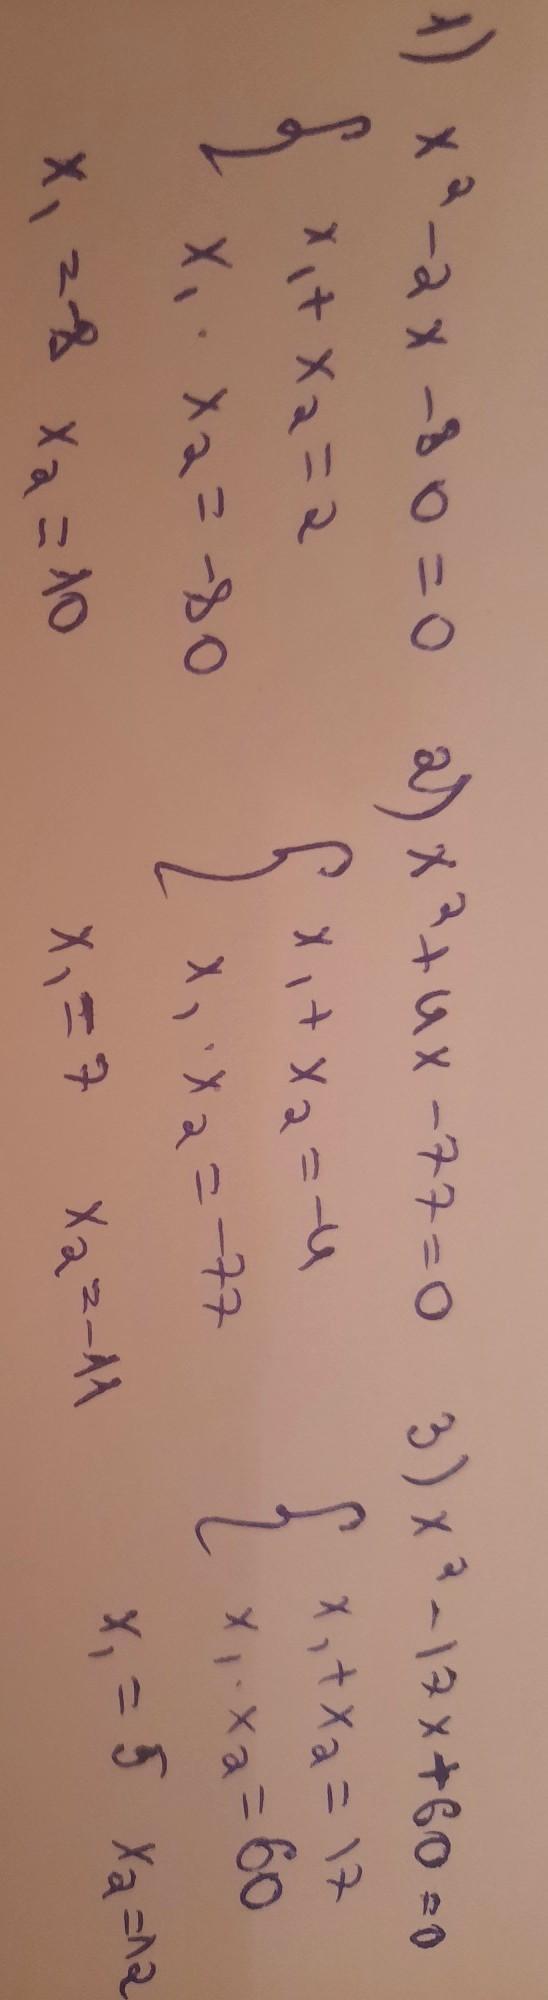 1) x² - 2x - 80 = 0
{ x₁ + x₂ = 2
x₁ · x₂ = -80
x₁ = -8 x₂ = 10
2) x² + 4x - 77 = 0
{ x₁ + x₂ = -4
x₁ · x₂ = -77
x₁ = 7 x₂ = -11
3) x² - 17x + 60 = 0
{ x₁ + x₂ = 17
x₁ · x₂ = 60
x₁ = 5 x₂ = 12